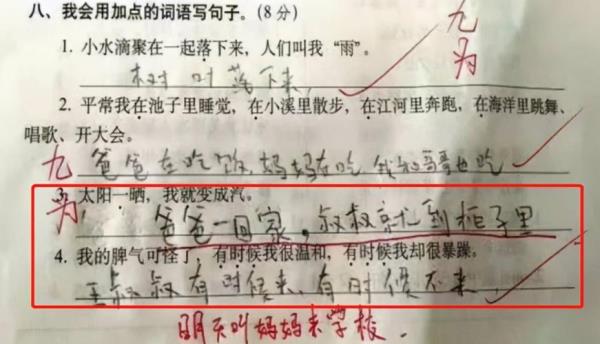 八、我会用加点的词语写句子。(8分)
1. 小水滴聚在一起落下来，人们叫我“雨”。
九
为
树叶落下来
2. 平常我在池子里睡觉，在小溪里散步，在江河里奔跑，在海洋里跳舞、
唱歌、开大会。
爸爸在吃饭，妈妈在吃 我和哥哥也吃
九
为
3. 太阳一晒，我就变成汽。
爸爸一回家，叔叔就到柜子里
4. 我的脾气可怪了，有时候我很温和，有时候我却很暴躁。
王叔叔有时候来，有时候不来
明天叫妈妈来学校.